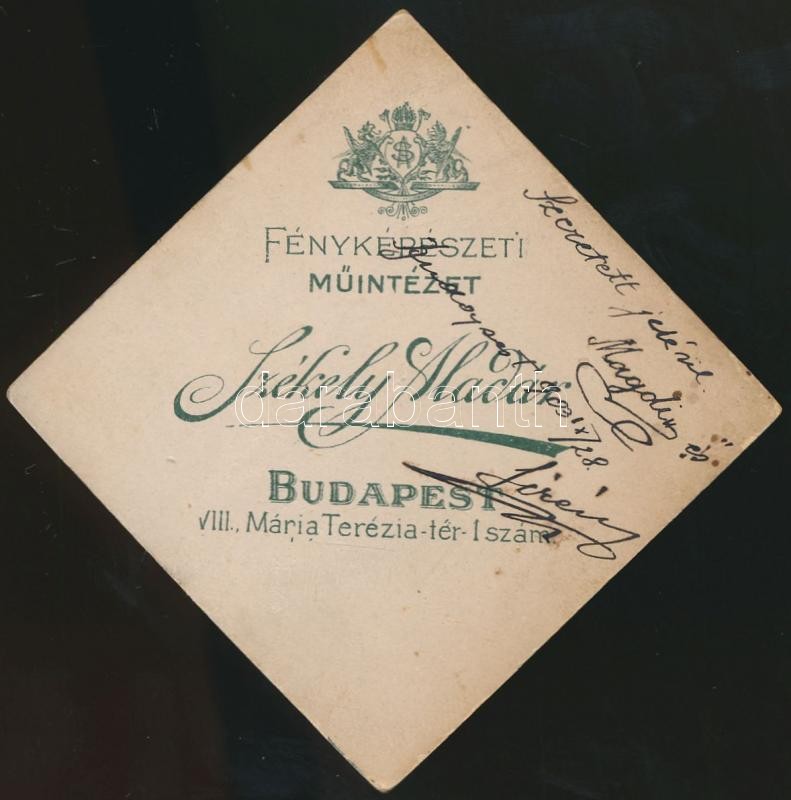 FÉNYKÉPÉSZETI
MŰINTÉZET
Székely Aladár
BUDAPEST
VIII., Mária Terézia-tér-1 szám.
Szeretett jeléül
Magdus és
IX/28.
darabanth